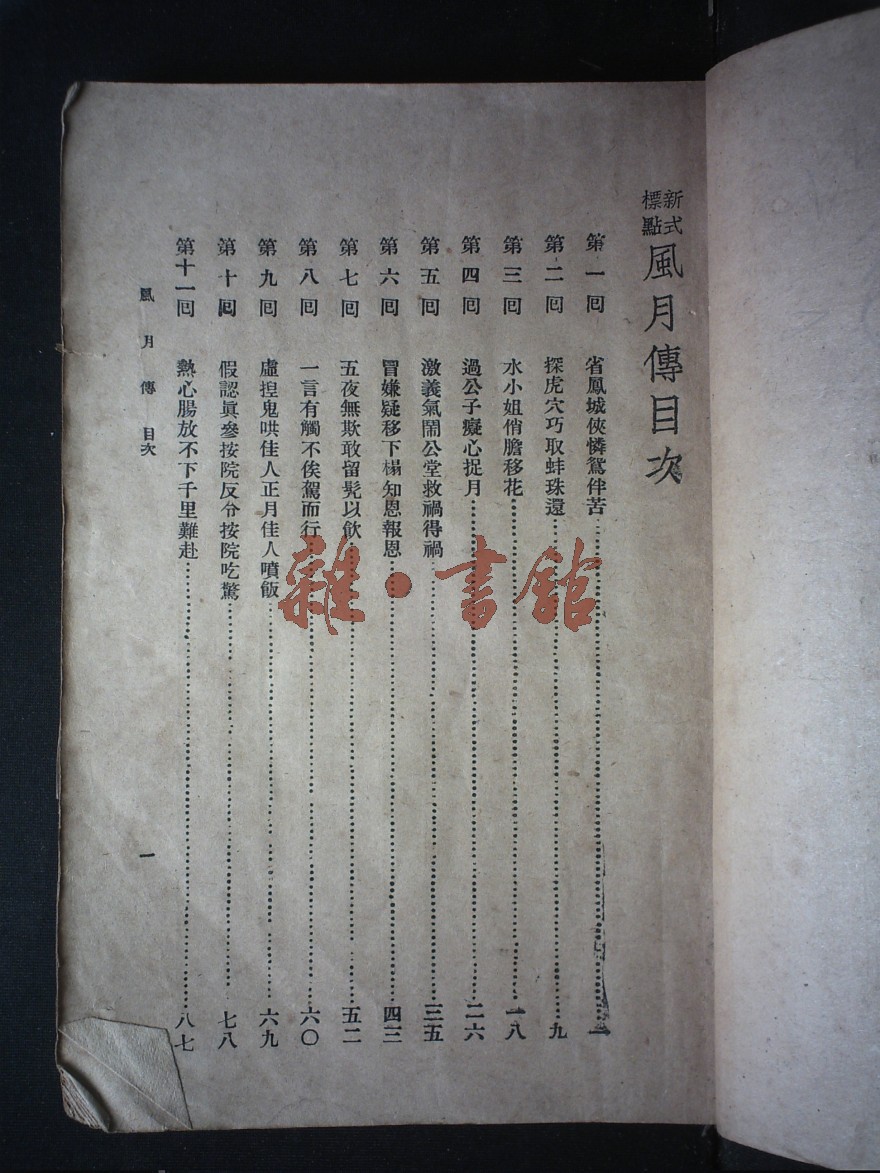 新式標點 風月傳目次
第一回 省鳳城俠憐鴛伴苦 一
第二回 探虎穴巧取蚌珠還 九
第三回 水小姐俏膽移花 一八
第四回 過公子癡心捉月 二六
第五回 激義氣鬧公堂救禍得禍 三五
第六回 冒嫌疑移下榻知恩報恩 四三
第七回 五夜無欺敢留髡以飲 五二
第八回 一言有觸不俟駕而行 六〇
第九回 虛揑鬼哄佳人正月佳人噴飯 六九
第十回 假認眞參按院反令按院吃驚 七八
第十一回 熱心腸放不下千里難赴 八七
風月傳 目次 一
雜·書館